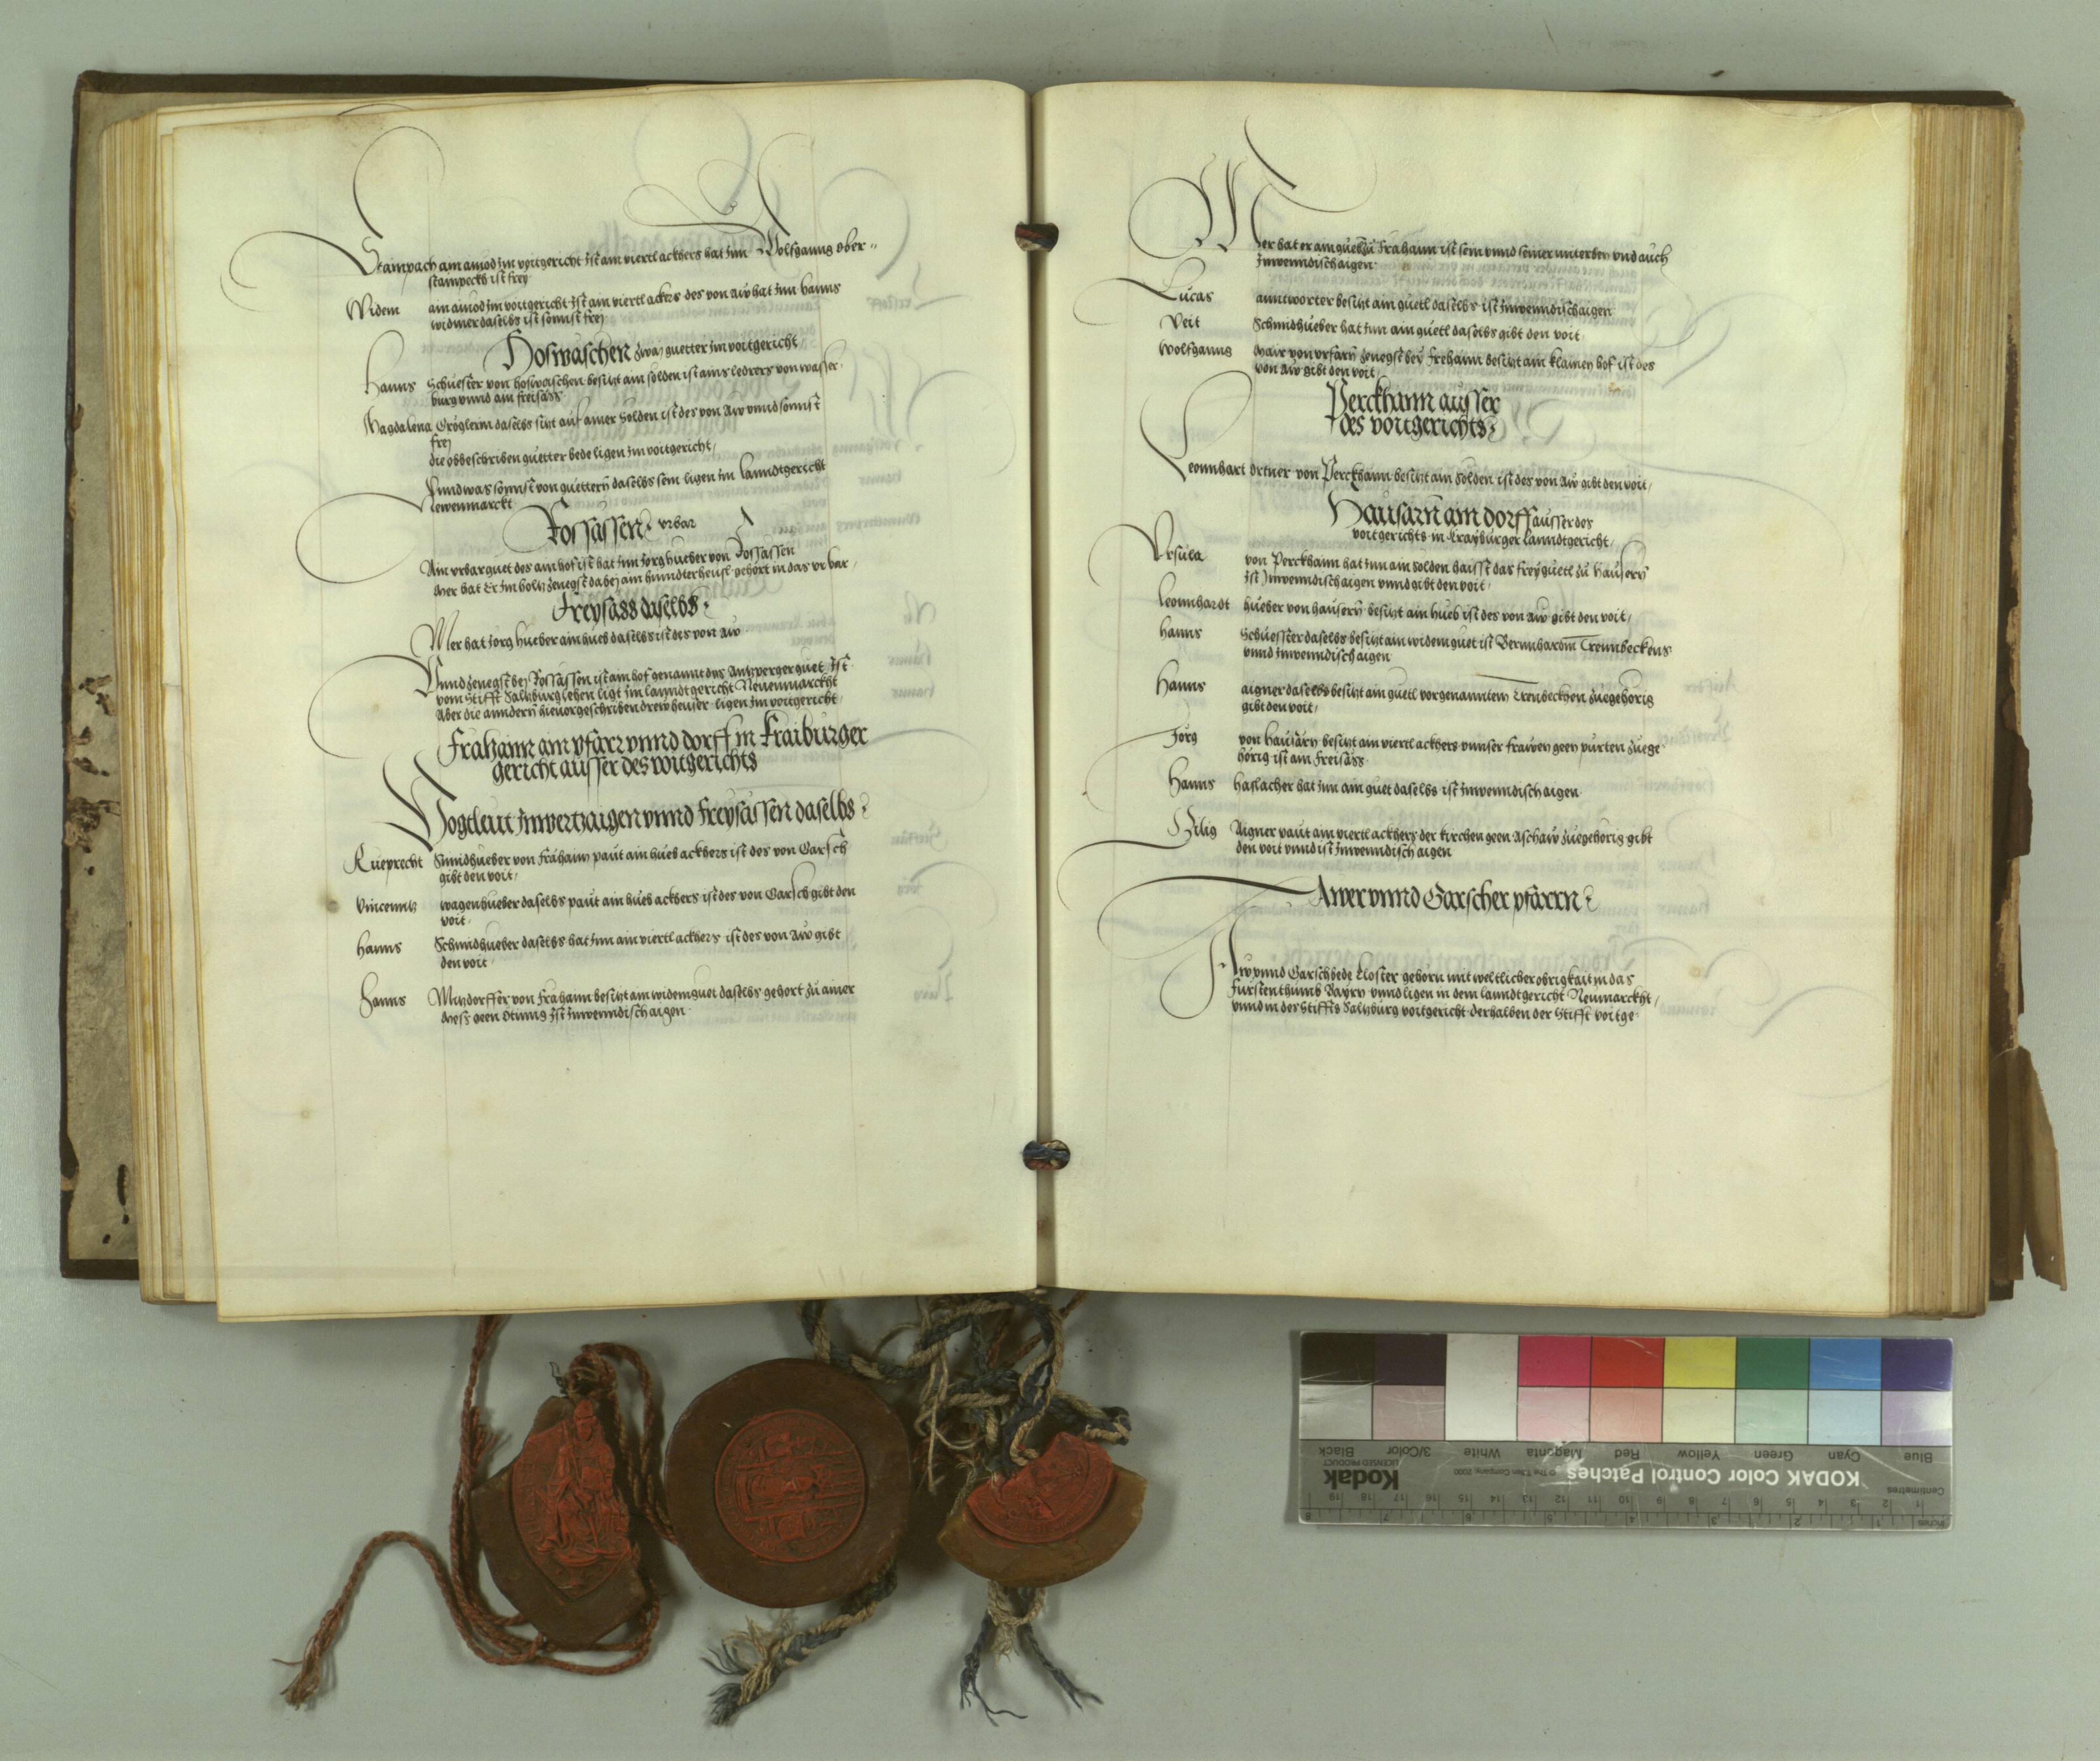 Stainpach am amod im voitgericht Ist ain viertl ackhers hat Inn Wolfganng ober-
stampeckh ist frey
Widem ain amod im voitgericht Ist ain viertl ackers des von Aw hat Inn hanns
widmer daselbs ist sonnst frey
Hofwaschen zway guetter im voitgericht
Hanns Schuester von hofwaschen besitzt ain sölden ist ains ledrers von wasser-
burg vnnd ain freisäss
Magdalena Gröglerin daselbs sitzt auf ainer Sölden ist des von Aw vnnd sonnst
frey
die obbeschriben guetter bede ligen im voitgericht
Vnnd was sonnst von guettern daselbs sein ligen im lanndtgericht
Newenmarckt
Fossassen vrbar
Ain vrbarguet des ain hof ist hat Inn Jorg hueber von Fossassen
Mer hat Er im holtz zenegst dabey ain hinndterheusl gehört in das vrbar
Freysäss daselbs
Mer hat Jorg hueber ain hueb daselbs ist des von Aw
Vnnd zenegst bey Fossässen ist ain hof genannt das Antzperger guet Ist
vom Stifft Saltzburg lehen ligt im lanndtgericht Neuenmarckht
Aber die anndern hieuorgeschriben drew heuser ligen im voitgericht
Frahaim am pfarr vnnd dorff in Kraiburger
gericht ausser des voitgerichts
Vogtleut Inwertzaigen vnnd Freysassen daselbs
Rueprecht Smidhueber von frahaim paut ain hueb ackhers ist des von Garsch
gibt den voit
Vincenntz wagenhueber daselbs paut ain hueb ackhers ist des von Garsch gibt den
voit
Hanns Schmidhueber daselbs hat Inn ain viertl ackhers ist des von Aw gibt
den voit
Hanns Myndorffer von Frahaim besitzt ain widemguet daselbs gehort zu ainer
Mess geen Ötting Ist Inwenndisch aigen
Mer hat er ain guetl zu Frahaim ist sein vnnd seiner miterben vnd auch
Inwenndisch aigen
Lucas anntworter besitzt ain guetl daselbs ist Inwenndisch aigen
Veit Schmidhueber hat Inn ain guetl daselbs gibt den voit
Wolfganng Mair von vrfarn zenegst bey Frehaim besitzt ain klainen hof ist des
von Aw gibt den voit
Perckhaim ausser
des voitgerichts
Leonnhart ortner von Perckhaim besitzt ain Sölden ist des von Aw gibt den voit
Hausärn am dorff ausser des
voitgerichts in krayburger lanndtgericht
Vrsula von Perckhaim hat Inn ain sölden haisst das freyguetl zu Hausern
Ist Inwenndisch aigen vnnd gibt den voit
Leonnhardt hueber von hausern besitzt ain hueb ist des von Aw gibt den voit
Hanns Schuesster daselbs besitzt ain widemguet ist Bernnhardin Trennbeckens
vnnd Inwenndisch aigen
Hanns aigner daselbs besitzt ain guetl vorgenanntem Trenbeckhen zuegehörig
gibt den voit
Jorg von Hausärn besitzt ain viertl ackhers vnnser frawen geen purten zuege-
hörig ist ain Freisäss
Hanns Haslacher hat Inn ain guet daselbs ist Inwenndisch aigen
Gilig Aigner paut ain viertl ackhers der kirchen geen Aschaw zuegehörig gibt
den voit vnnd ist Inwenndisch aigen
Awer vnnd Garscher pfarrn
Aw vnnd Garsch bede Closter gehörn mit weltlicher obrigkait in das
Furstenthumb Bayrn vnnd ligen in dem lanndtgericht Neumarckht
vnnd in des Stiffts Saltzburg voitgericht derhalben der Stifft voitge-
KODAK Color Control Patches
Kodak
LICENSED PRODUCT
© The Tiffen Company, 2000
Blue Cyan Green Yellow Red Magenta White 3/Color Black
Centimetres 1 2 3 4 5 6 7 8 9 10 11 12 13 14 15 16 17 18 19
Inches 1 2 3 4 5 6 7 8